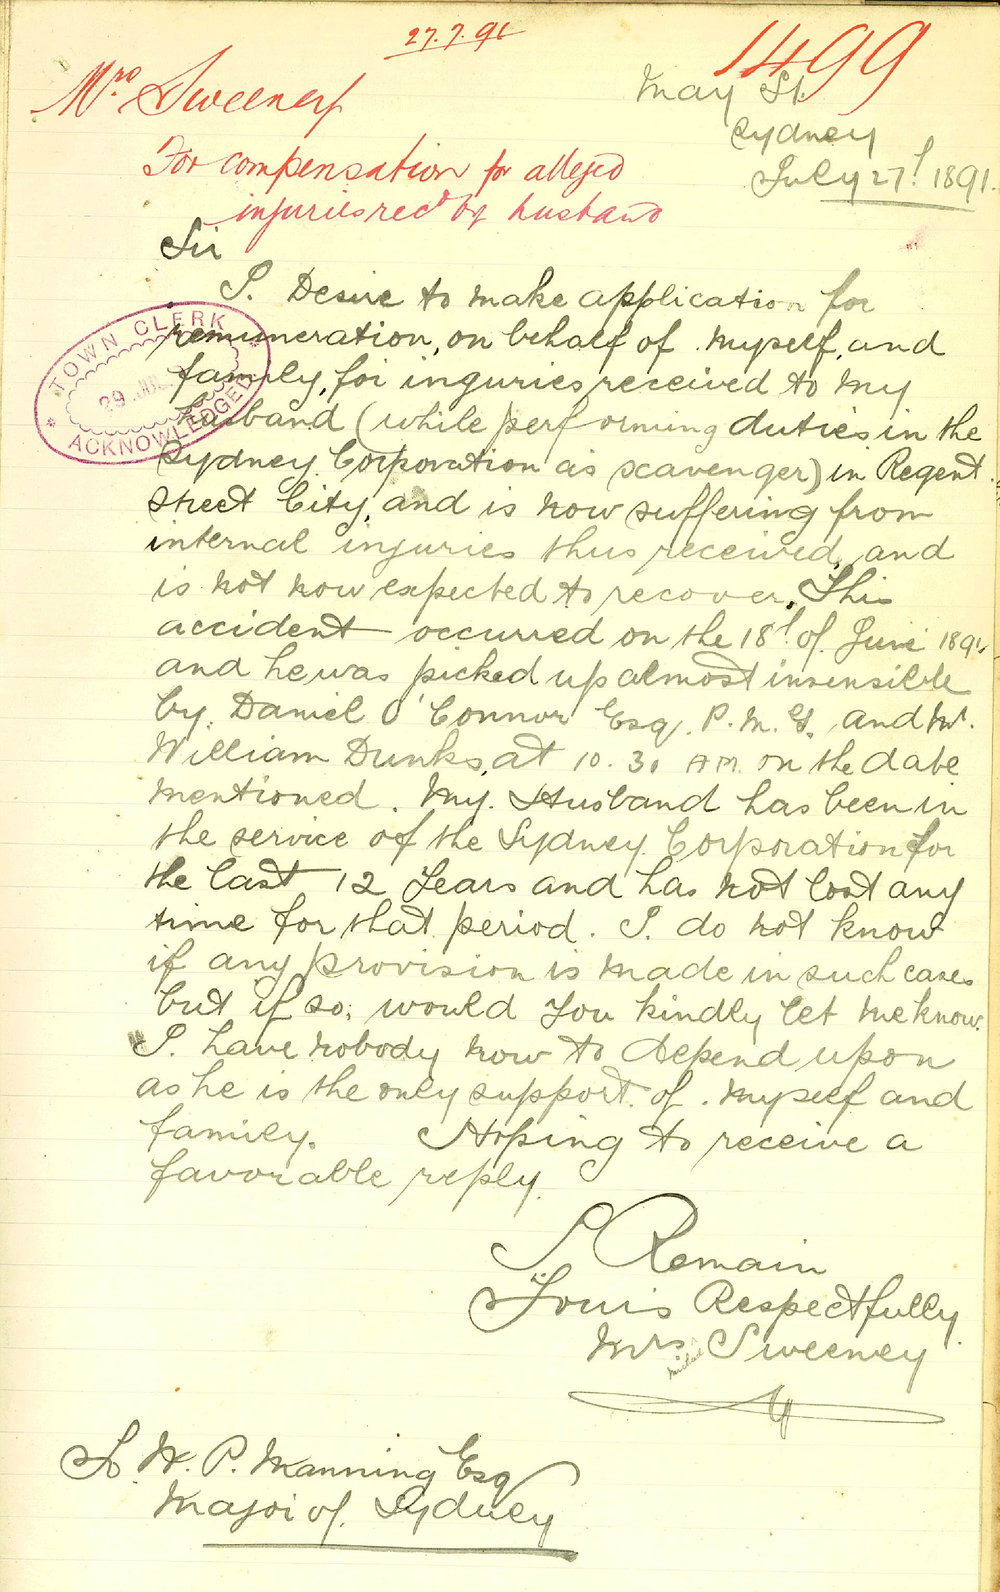 27.7.91
1499
Mrs Sweeney
May St.
Sydney
July 27t 1891.
For compensation for alleged
injuries recd by husband
Sir
I. Desire to make application for
remuneration, on behalf of myself, and
family, for inguries received to my
husband (while performing duties in the
Sydney Corporation as scavenger) in Regent
street City, and is now suffering from
internal inguries thus received, and
is not now expected to recover. This
accident occurred on the 18t of June 1891
and he was picked up almost insensible
by. Daniel O'Connor Esq. P.M.G. and Mr.
William Dunks, at 10.30 AM. on the date
mentioned. My. Husband has been in
the service of the Sydney Corporation for
the last 12 Years and has not lost any
time for that period. I. do not know
if any provision is made in such cases
but if so, would You kindly let me know.
I. have nobody now to depend upon
as he is the only support. of. myself and
family. Hoping to receive a
favorable reply.
I Remain
Yours Respectfully
Mrs Michael Sweeney
To W. P. Manning Esq
Mayor of. Sydney
TOWN CLERK
29 JUL
ACKNOWLEDGED